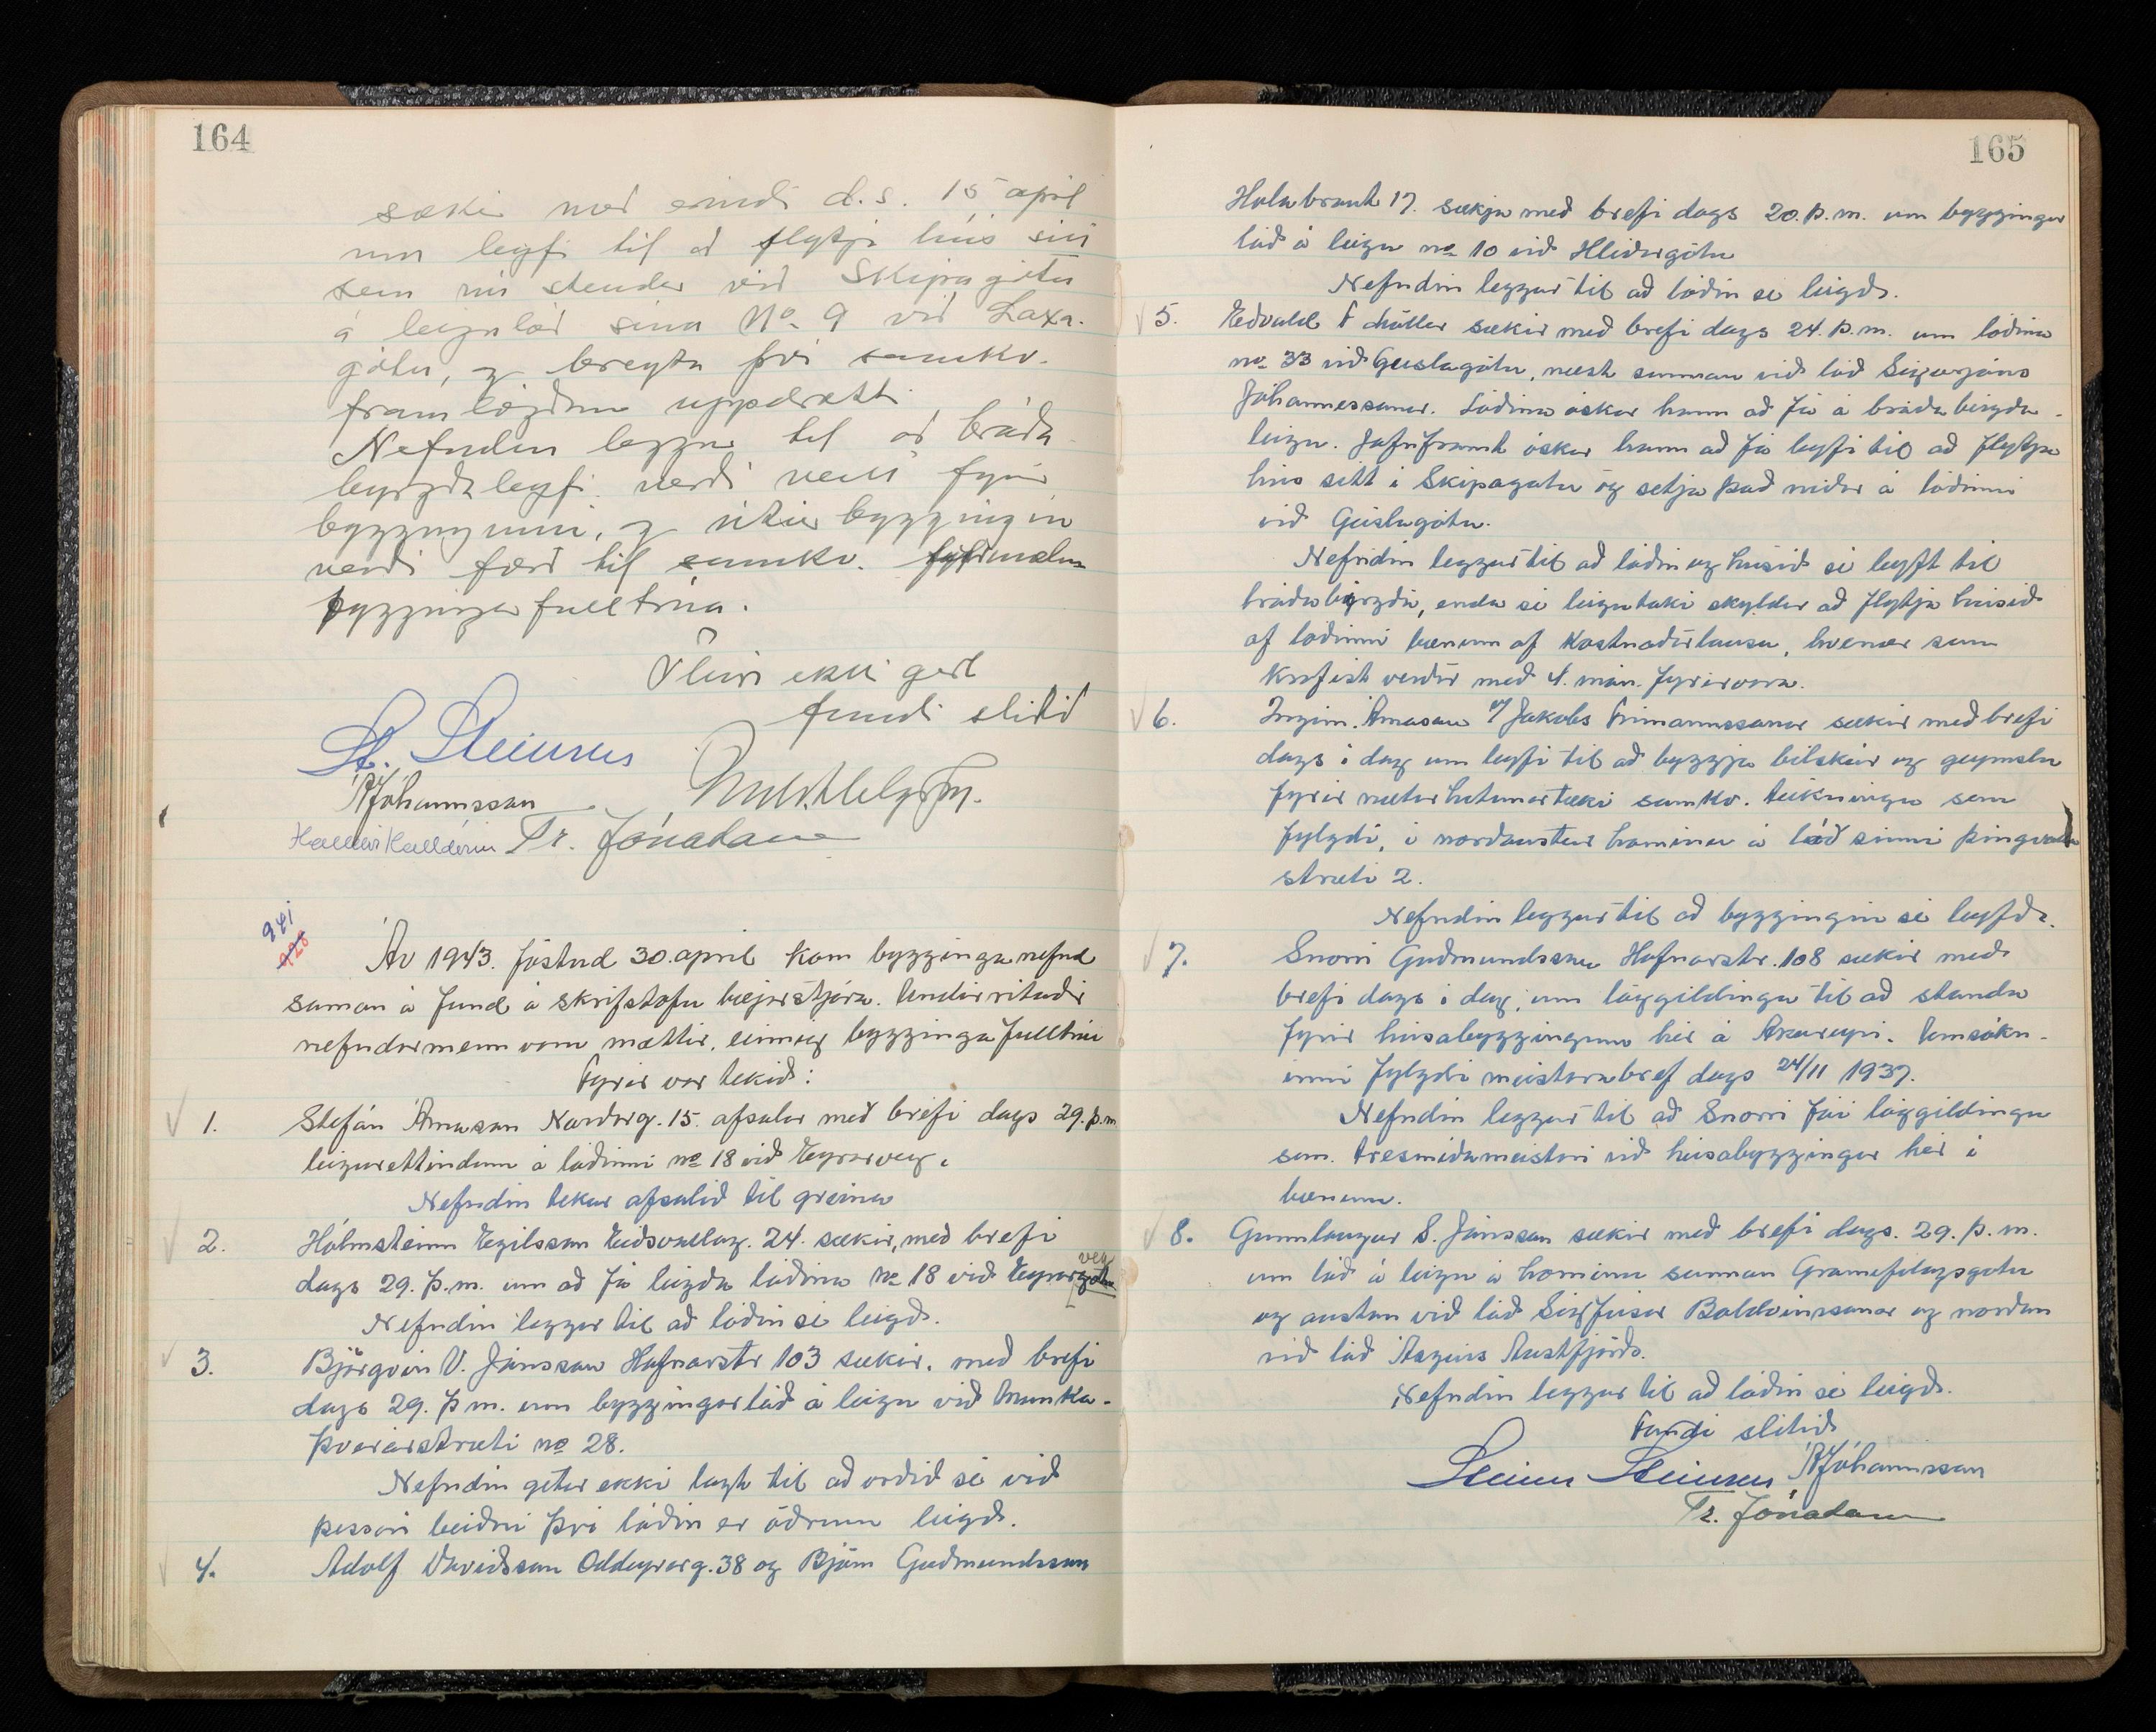 164
sækir með erindi d.s. 15 apríl
um leyfi til að flytja hús sín
sem nú stendur við Skipagötu
á leigulóð sína No. 9 við Laxa-
götu, og breyta því samkv.
framlögðum uppdrætti
Nefndin leggur til að bráða-
byrgðaleyfi verði veitt fyrir
byggingunni, og útlit byggingin
verði fært til samkv. fyrirmælum
byggingafulltrúa.
Fleira ekki gert
fundi slitið
St. Steinsen
ÁJóhannsson
Halldór Halldórsson Tr. Jónatansson
941
928
Ár 1943. föstud 30. april kom bygginganefnd
saman á fund á skrifstofu bæjarstjóra. Undirritaðir
nefndarmenn voru mættir, einnig byggingafulltrúi
Fyrir var tekið:
1. Stefán Árnason Nordurg. 15. afsalar með bréfi dags 29. þ.m.
leiguréttindum á lóðinni no 18 við Eyrarveg.
Nefndin tekur afsalið til greina
2. Hólmsteinn Egilsson Eiðsvallag. 24. sækir, með bréfi
dags 29. þ.m. um að fá leigða lóðina no 18 við Eyrargötu
veg
Nefndin leggur til að lóðin sé leigð.
3. Björgvin V. Jónsson Hafnarstr 103 sækir. með bréfi
dags 29. þ.m. um byggingarlóð á leigu við Munka-
þverárstræti no 28.
Nefndin getur ekki lagt til að orðið sé við
þessari beiðni því lóðin er öðrum leigð.
4. Adolf Davíðsson Oddeyrarg. 38 og Björn Guðmundsson
165
Holabraut 17. sækja með bréfi dags 20. þ.m. um byggingar
lóð á leigu no 10 við Hlíðargötu
Nefndin leggur til að lóðin sé leigð.
5. Edvald F Möller sækir með bréfi dags 24. þ.m. um lóðina
no 33 við Geislagötu, næst sunnan við lóð Sigurjóns
Jóhannessonar. Lóðina óskar hann að fá á bráðabirgða-
leigu. Jafnframt óskar hann að fá leyfi til að flytja
hús sitt í Skipagötu og setja það niður á lóðinni
við Geislagötu.
Nefndin leggur til að lóðin og húsið sé leyft til
bráðabirgða, enda sé leigutaki skyldur að flytja húsið
af lóðinni bænum að kostnaðarlausu, hvenær sem
krafist verður með 4. mán. fyrirvara.
6. Ingim. Árnason f/ Jakobs Frimannssonar sækir með bréfi
dags í dag um leyfi til að byggja bílskúr og geymslu
fyrir næturhitunartæki samkv. teikningu sem
fylgdi, í norðaustur horninu á lóð sinni Þingvalla
stræti 2.
Nefndin leggur til að byggingin sé leyfð.
7. Snorri Guðmundsson Hafnarstr. 108 sækir með
bréfi dags í dag, um löggildingu til að standa
fyrir húsabyggingum hér á Akureyri. Umsókn-
inni fylgdi meistarabréf dags 24/11 1937.
Nefndin leggur til að Snorri fái löggildingu
sem. trésmíðameistari við húsabyggingar hér í
bænum.
8. Gunnlaugur S. Jónsson sækir með bréfi dags. 29. þ.m.
um lóð á leigu á horninu sunnan Gránufélagsgötu
og austan við lóð Sigfúsar Baldvinssonar og norðan
við lóð Asgeirs Austfjörðs.
Nefndin leggur til að lóðin sé leigð.
Fundi slitið
Steinn Steinsen ÁJóhannsson
Tr. Jónatansson